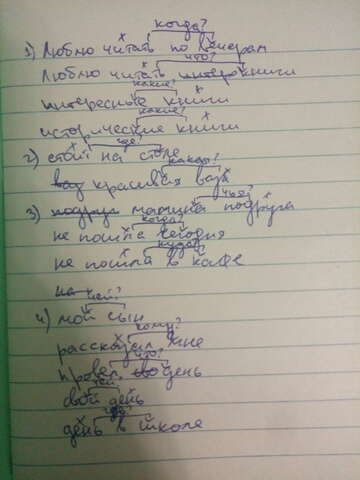 когда?
1) Люблю читать по вечерам
что?
Люблю читать книги
какие?
интересные книги
какие?
исторические книги
где?
2) стоит на столе
какая?
красивая ваза
чья?
3) подруга
когда?
не пошла сегодня
куда?
не пошла в кафе
чей?
4) мой сын
кому?
рассказал мне
что?
провел день
чей?
свой день
где?
день в школе